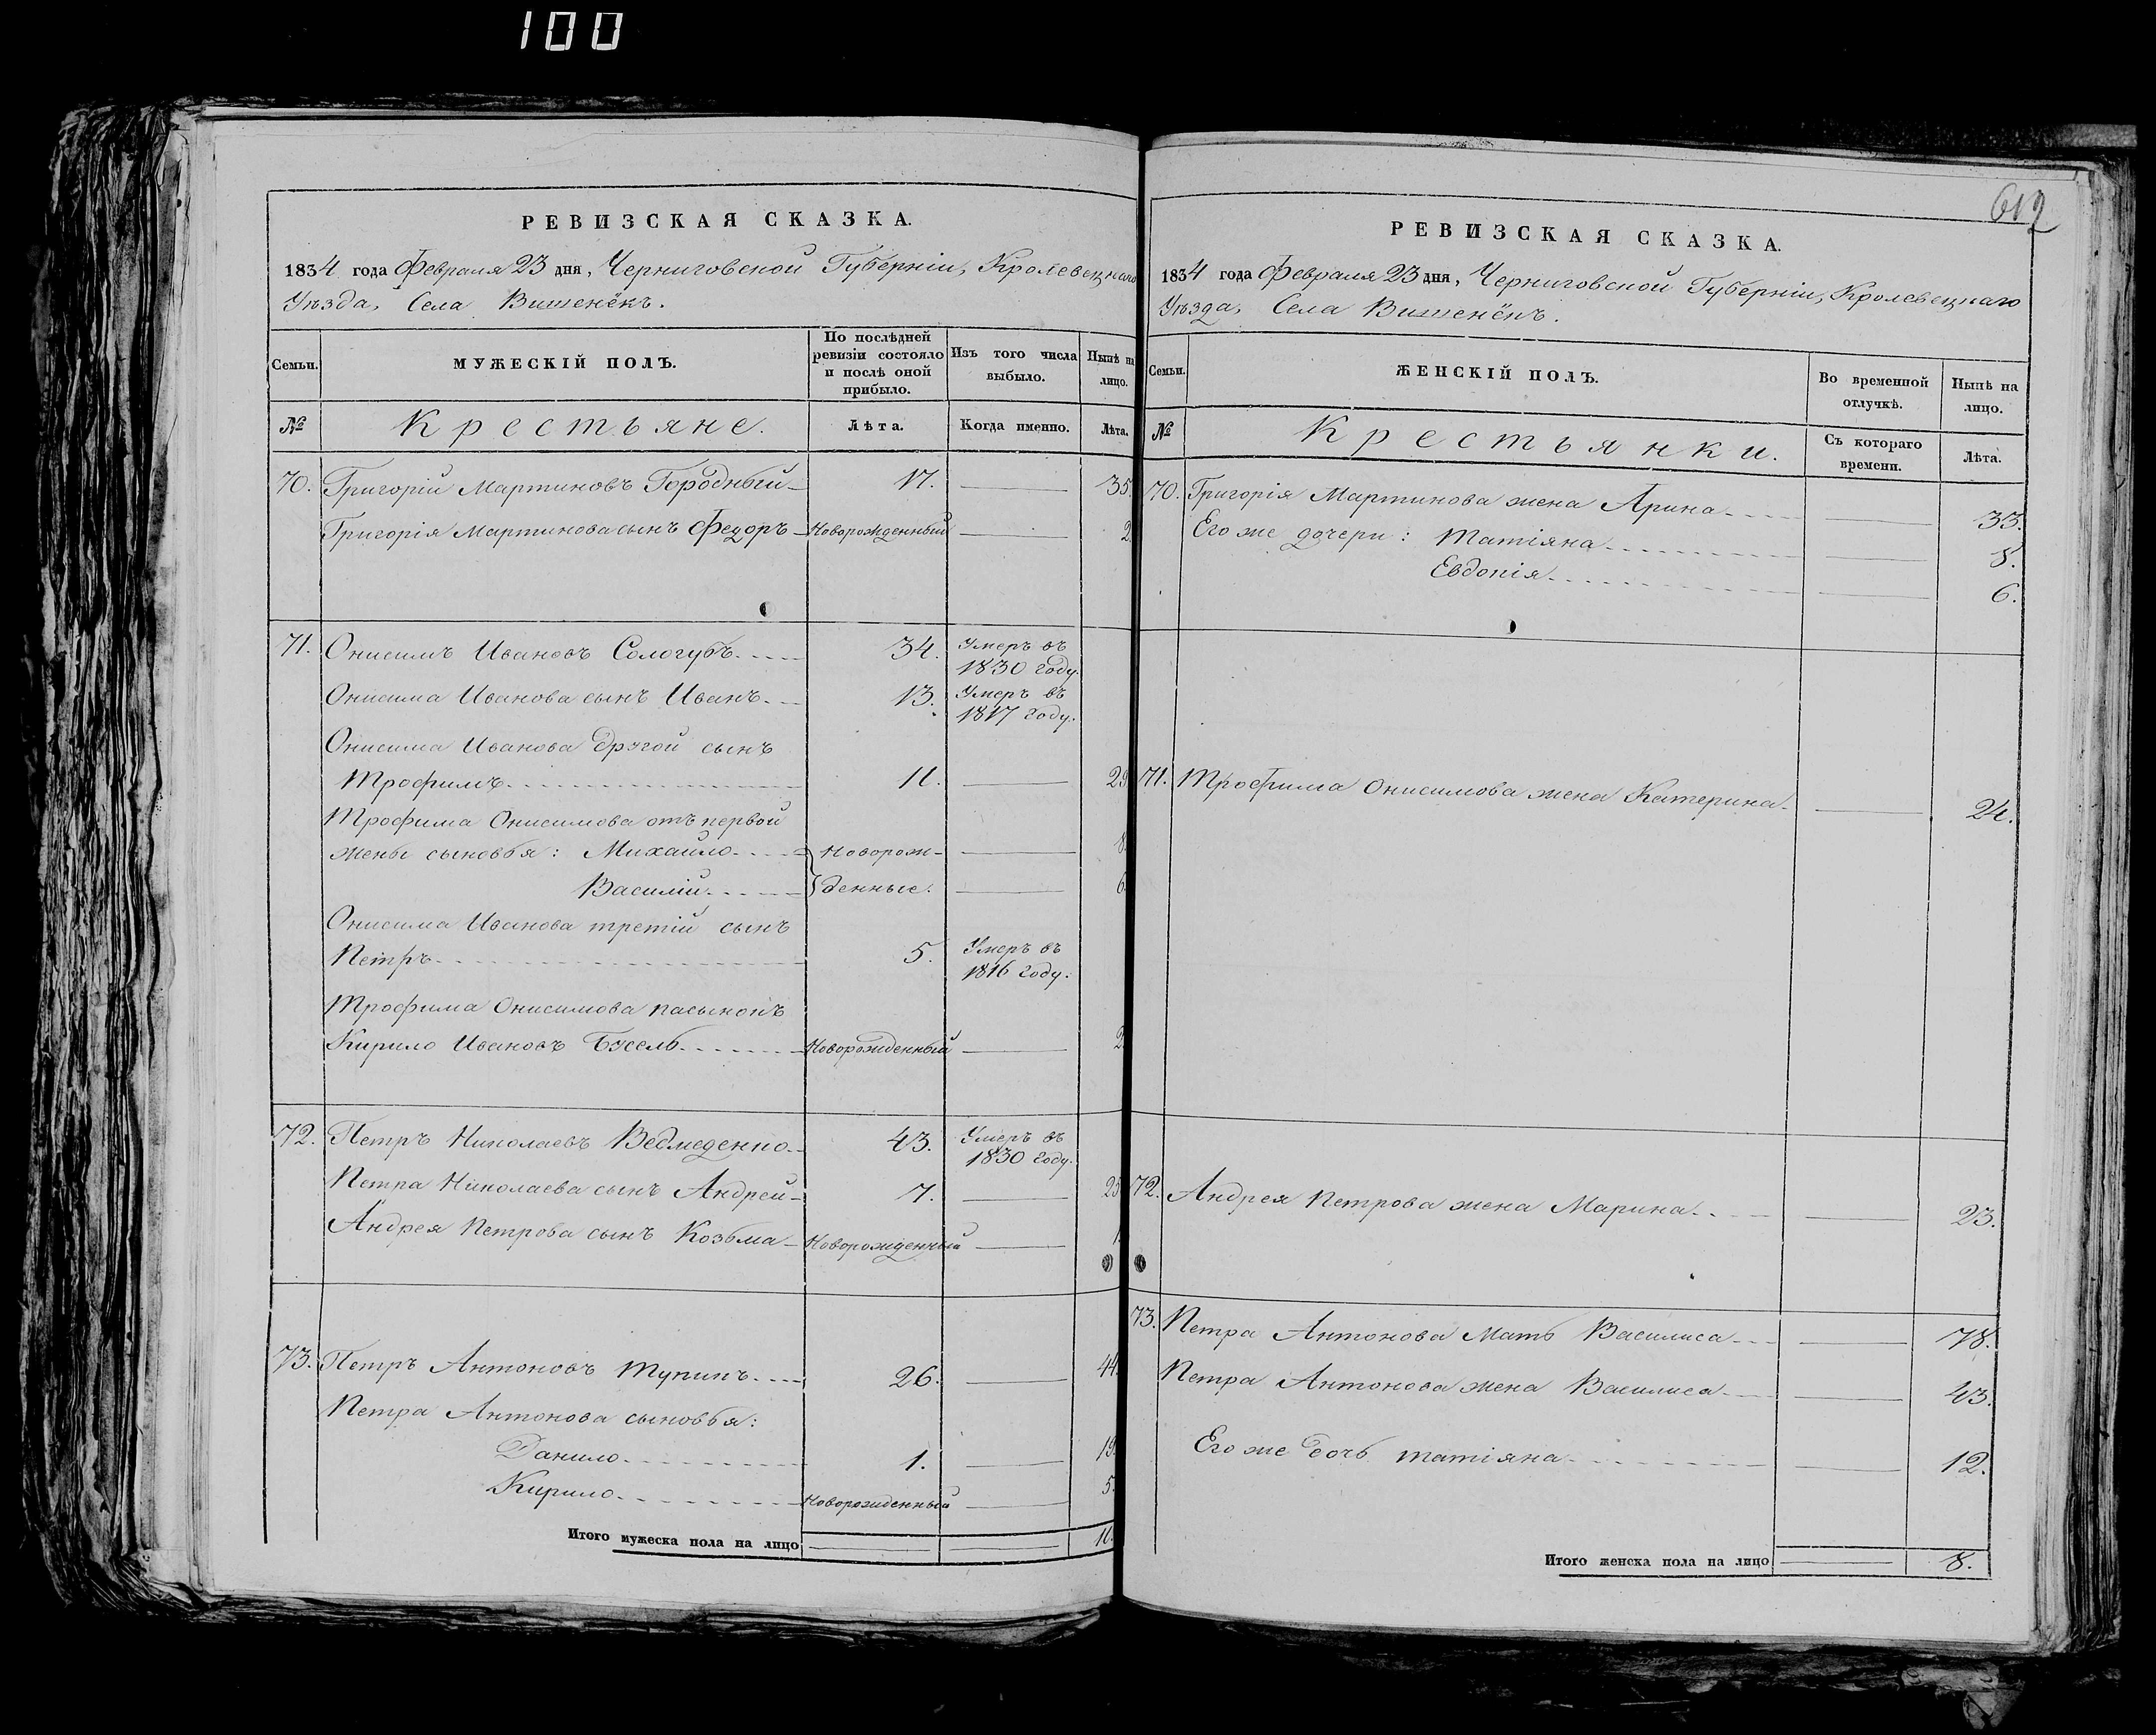 100
РЕВИЗСКАЯ СКАЗКА.
1834 года Февраля 23 дня, Черниговской Губерніи, Кролевецкаго
Уѣзда, Села Вишенёкъ.
Семьи.
МУЖЕСКІЙ ПОЛЪ.
По послѣдней
ревизіи состояло
и послѣ оной
прибыло.
Изъ того числа
выбыло.
Нынѣ на
лицо.
№
Крестьяне.
Лѣта.
Когда именно.
Лѣта.
70. Григорій Мартиновъ Городный 17. 35.
Григорія Мартинова сынъ Федоръ Новорожденный 2.
71. Онисимъ Ивановъ Сологубъ 34. Умеръ въ
1830 году.
Онисима Иванова сынъ Иванъ 13. Умеръ въ
1817 году.
Онисима Иванова другой сынъ
Трофимъ 11. 29
Трофима Онисимова отъ первой
жены сыновья: Михайло Новорож- 8.
Василій денные. 6.
Онисима Иванова третій сынъ
Петръ 5. Умеръ въ
1816 году.
Трофима Онисимова пасынокъ
Кирило Ивановъ Бусель Новорожденный 2.
72. Петръ Николаевъ Ведмеденко 43. Умеръ въ
1830 году.
Петра Николаева сынъ Андрей 7. 25
Андрея Петрова сынъ Козьма Новорожденный 1.
73. Петръ Антоновъ Тупикъ 26. 44.
Петра Антонова сыновья:
Данило 1. 19.
Кирило Новорожденный 5.
Итого мужеска пола на лицо 10.
612
РЕВИЗСКАЯ СКАЗКА.
1834 года Февраля 23 дня, Черниговской Губерніи, Кролевецкаго
Уѣзда, Села Вишенёкъ.
Семьи.
ЖЕНСКІЙ ПОЛЪ.
Во временной
отлучкѣ.
Нынѣ на
лицо.
№
Крестьянки.
Съ котораго
времени.
Лѣта.
70. Григорія Мартинова жена Арина 33.
Его же дочери: Татіяна 8.
Евдокія 6.
71. Трофима Онисимова жена Катерина 24.
72. Андрея Петрова жена Марина 23.
73. Петра Антонова Мать Василиса 78.
Петра Антонова жена Василиса 43.
Его же дочь Татіяна 12.
Итого женска пола на лицо 8.